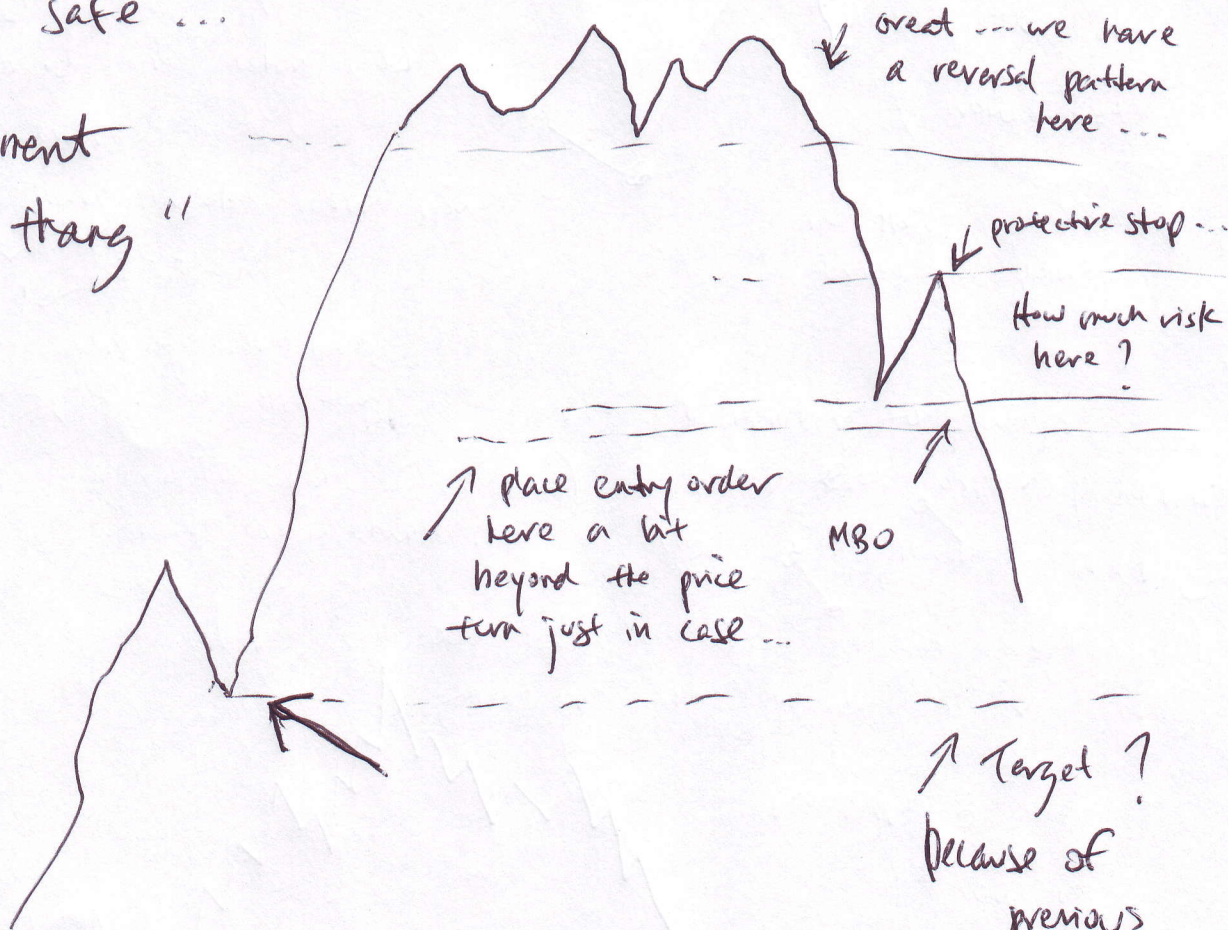 safe ...
ment
thang "
Great ... we have
a reversal pattern
here ...
protective stop ...
How much risk
here ?
place entry order
here a bit
beyond the price
turn just in case ...
MBO
Target ?
because of
previous